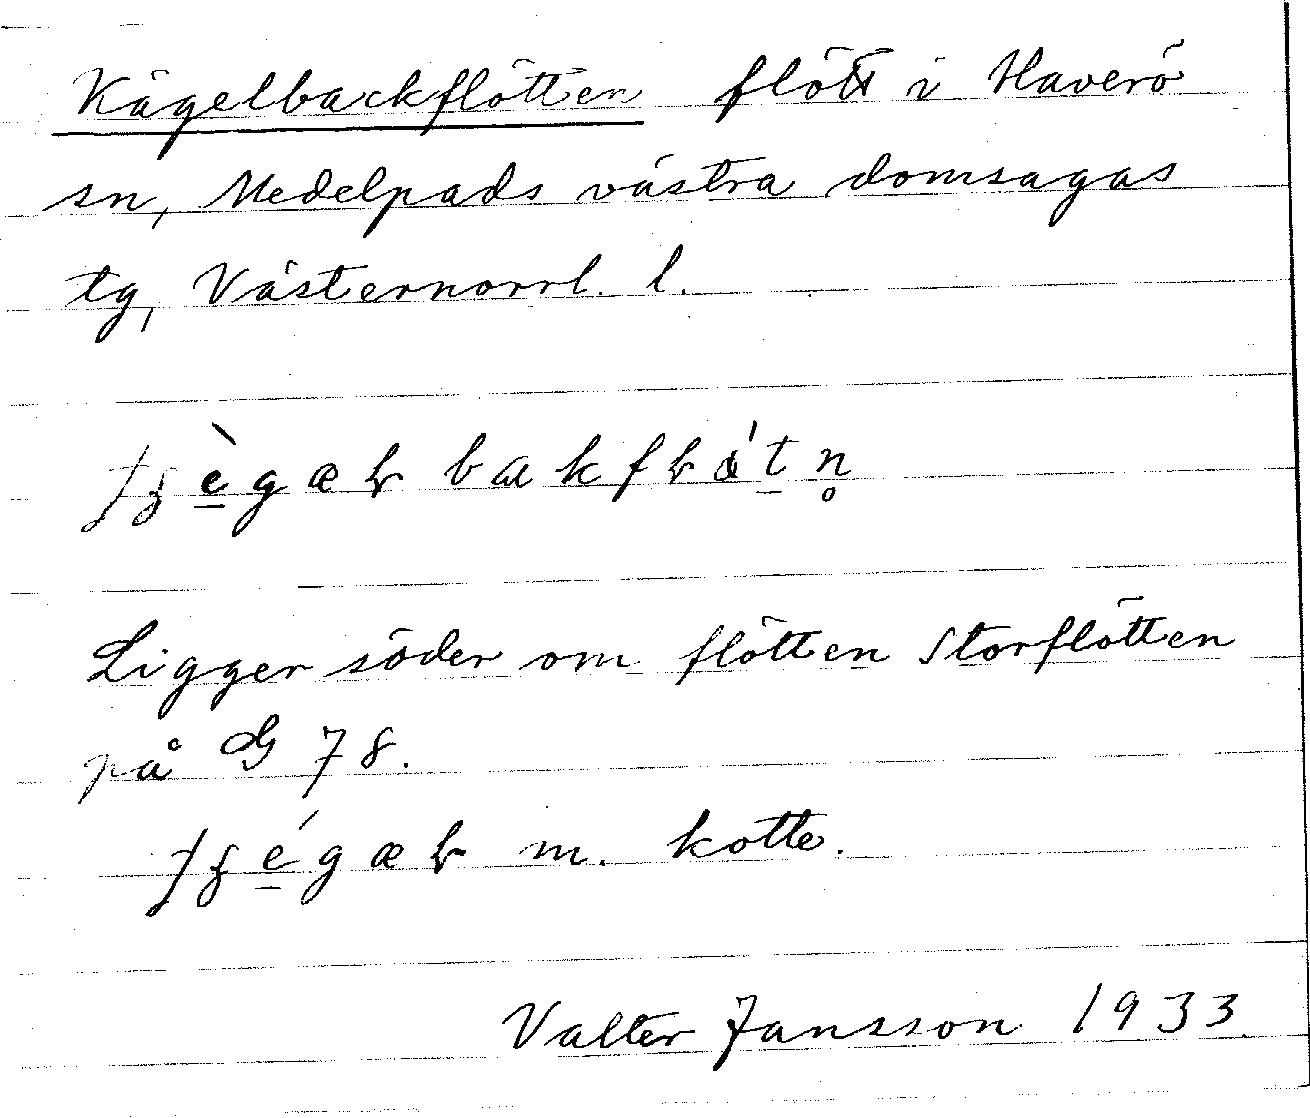 Kägelbackflötten flöt i Haverö
sn, Medelpads västra domsagas
tg, Västernorrl. l.
Ligger söder om flötten Storflötten
på G 78.
m. kotte.
Valter Jansson 1933.